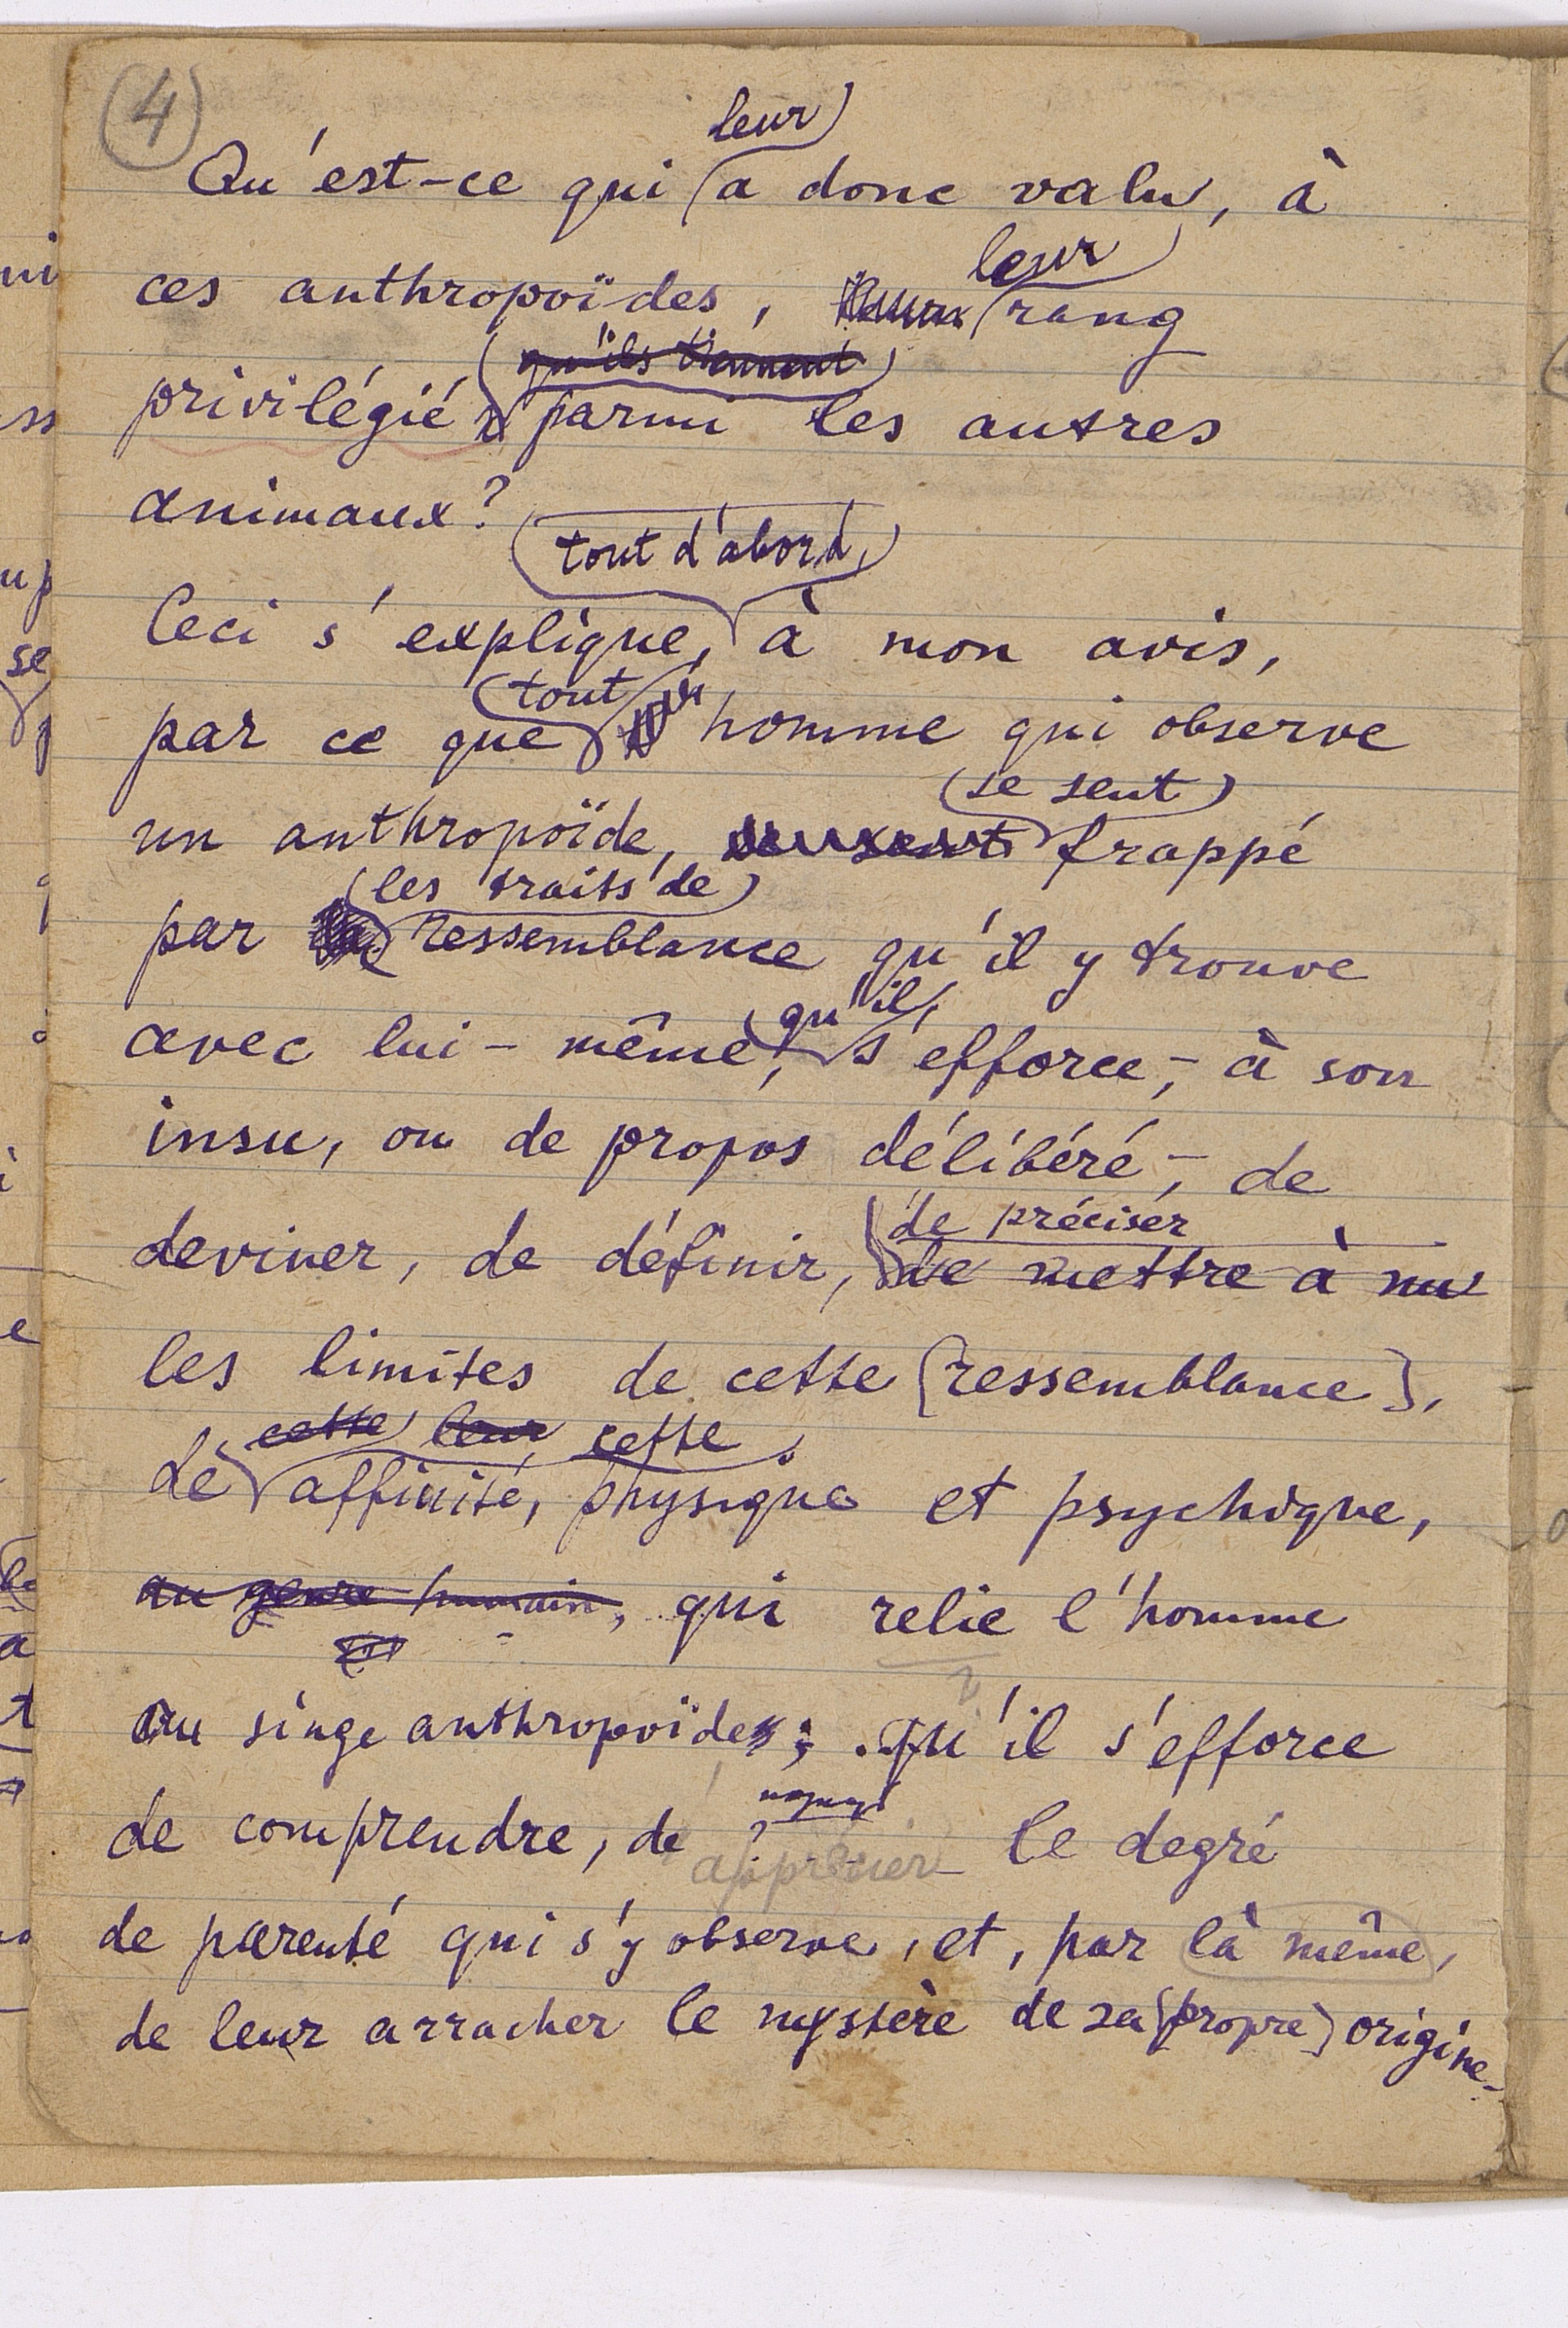 4
leur
Qu'est-ce qui a donc valu, à
leur
ces anthropoïdes, rang
qu'ils tiennent
privilégié parmi les autres
animaux?
tout d'abord,
Ceci s'explique, à mon avis,
tout
par ce que homme qui observe
se sent
un anthropoïde, frappé
les traits de
par ressemblance qu'il y trouve
qu'il
avec lui-même, s'efforce, - à son
insu, ou de propos délibéré, - de
de préciser
deviner, de définir, de mettre à nu
les limites de cette [ressemblance],
cette leur cette
de affinité, physique et psychique,
au genre humain, qui relie l'homme
?
au singe anthropoïde; qu'il s'efforce
de comprendre, de apprécier le degré
de parenté qui s'y observe, et, par là même,
de leur arracher le mystère de sa [propre] origine-